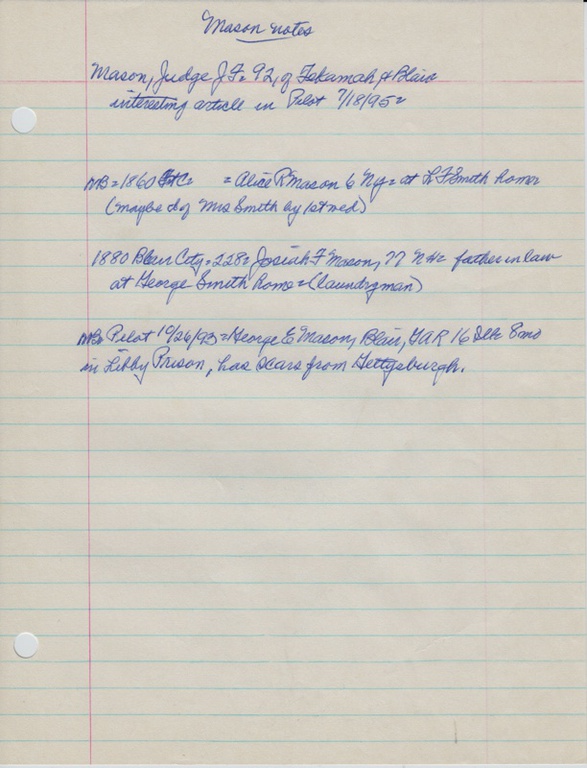 Mason notes
Mason, Judge J F= 92, of Tekamah & Blair
interesting article in Pilot 7/18/95=
NB=1860 = Alice R Mason 6 Ny= at L F Smith home=
(maybe d of Mrs Smith by 1st wed)
1880 Blair City=228= Josiah F Mason, 77 NH= father in law
at George Smith home=(laundryman)
NB= Pilot 10/26/93=George E Mason, Blair, GAR 16 8 mo
in Libby Prison, has scars from Gettysburgh.